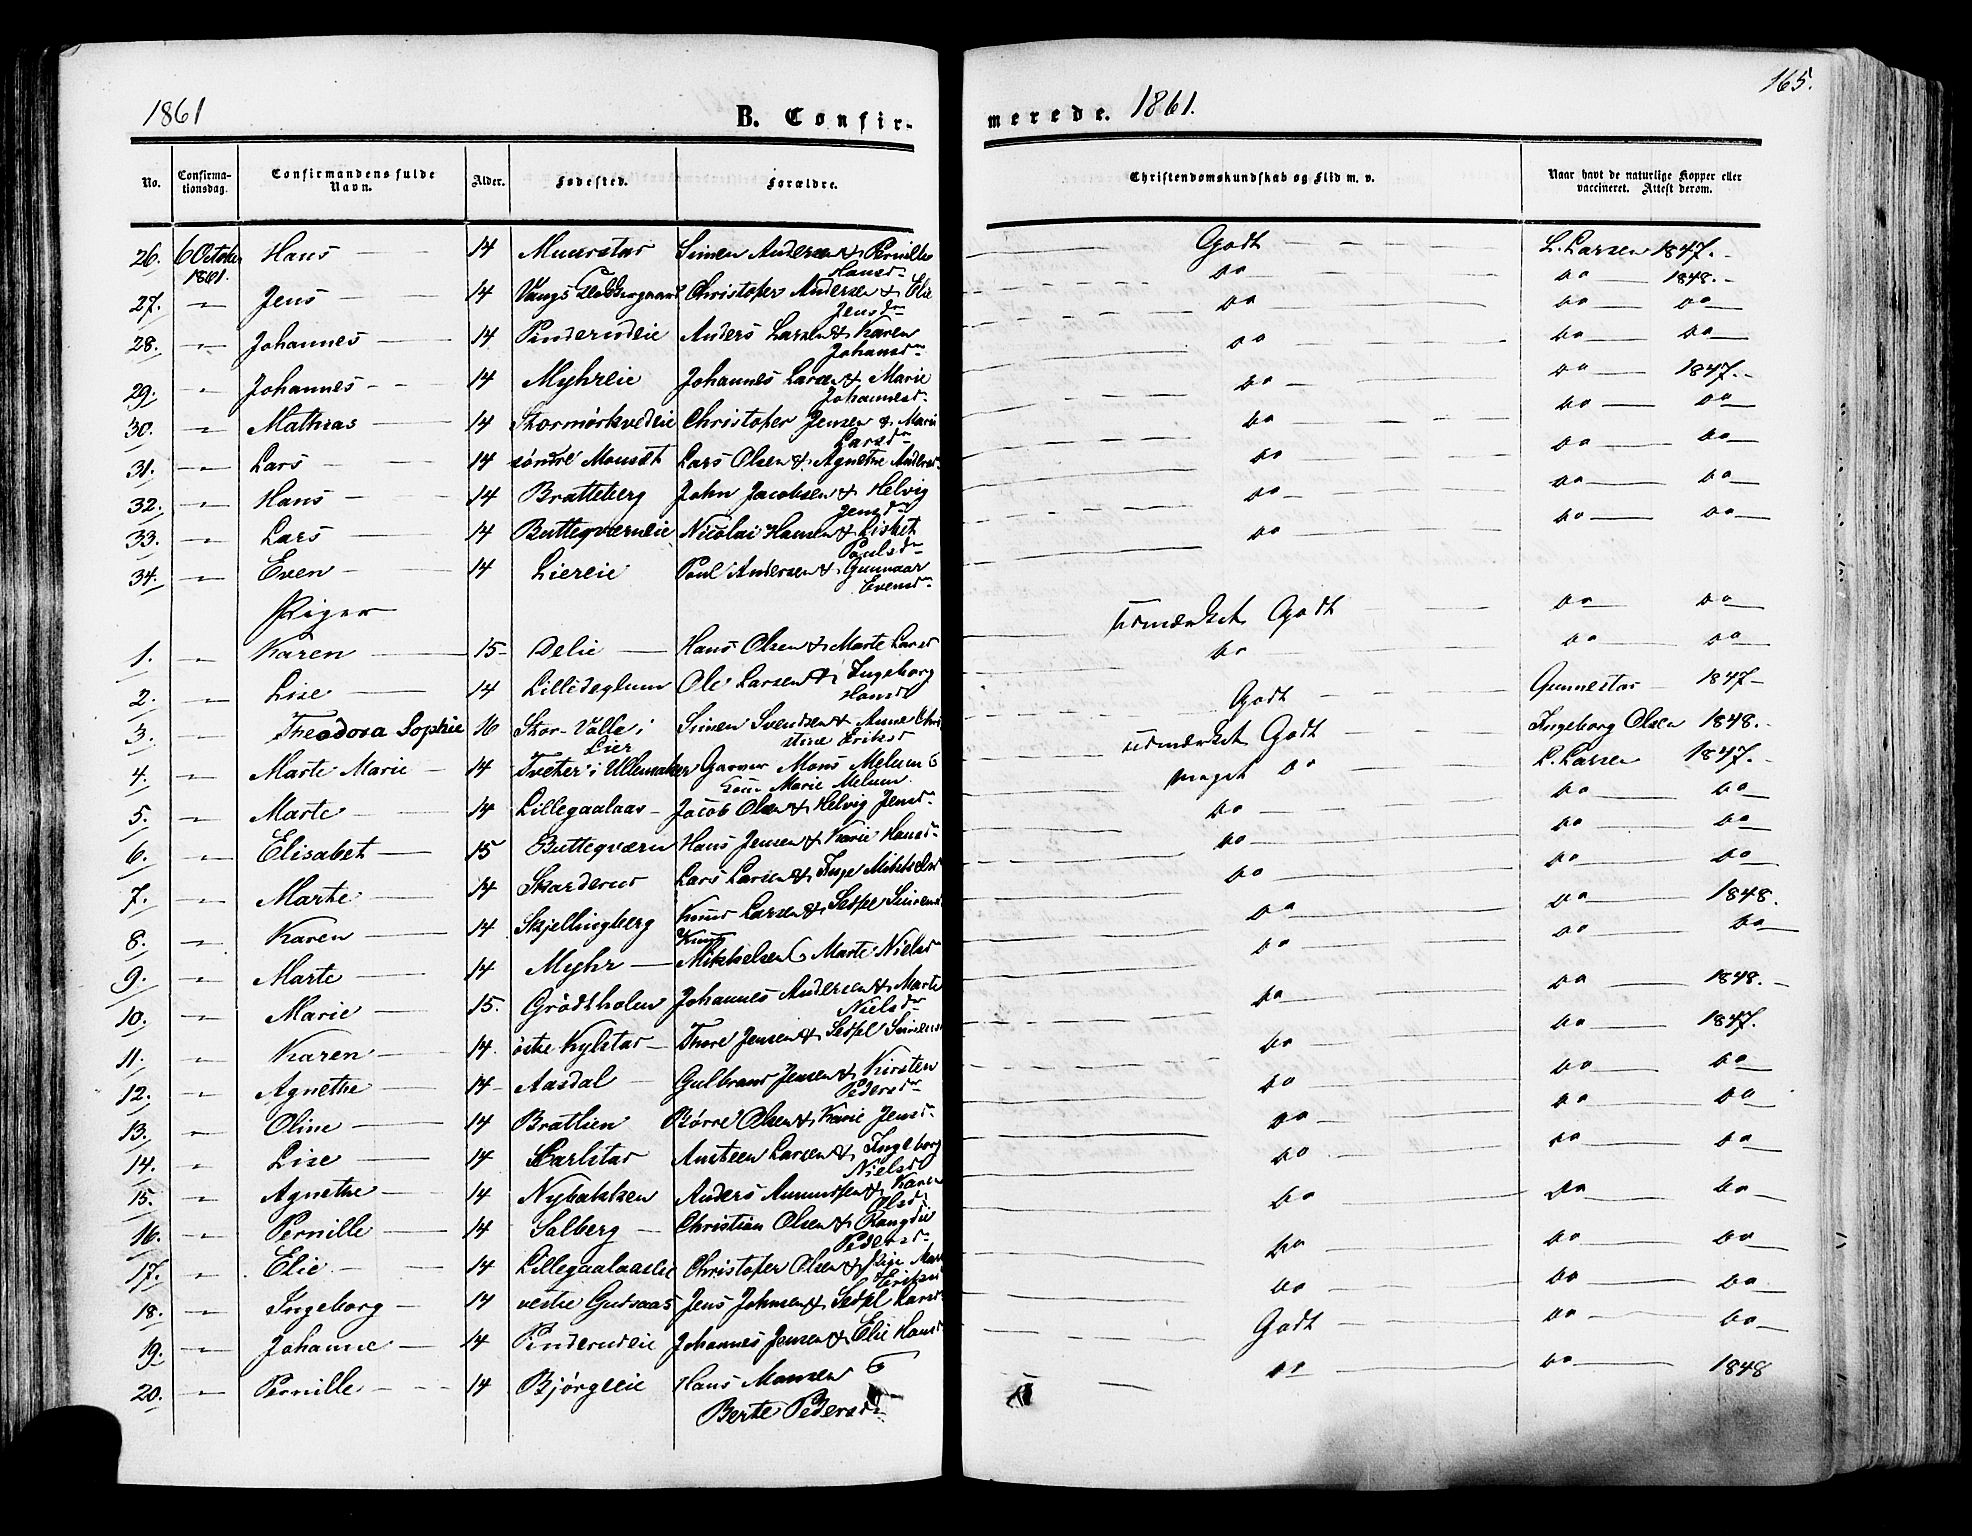 1861
B. Confir-
No.
Confirma-
tionsdag.
Confirmandens fulde
Navn.
Alder.
Fødested.
Forældre.
26. 6 October Hans 14 Muurstad Simen Andersen & Pernille
1861. Hansd
27. " Jens 14 Christofer Andersen & Elie
Jensd
28. " Johannes 14 Pinderudeie Anders Larsen & Karen
Johansd
29. " Johannes 14 Myhreie Johannes Larsen & Marie
Johannesd
30. " Mathias 14 Stormørkvedeie Christofer Jensen & Mari
Larsd
31. " Lars 14 søndre Monset Lars Olsen & Agnethe Andersd
32. " Hans 14 Bratteberg John Jacobsen & Helvig
Jensd
33. " Lars 14 Butteqværneie Nicolai Hansen & Lisbet
Paulsd
34. " Even 14 Liereie Poul Andersen & Gunnaar
Evensd
Piger
1. " Karen 15 Delie Hans Olsen & Marte Larsd
2. " Lise 14 Lilledeglum Ole Larsen & Ingeborg
Hansd
3. " Theodora Sophie 16 Stor-Valle i Simen Svendsen & Anne Chri
Lier stine Eriksd
4. " Marte Marie 14 Tveter i Ullensaker Garver Mons Melum &
Marie Melum
5. " Marte 14 Lillegaalaas Jacob Olsen & Helvig Jensd
6. " Elisabet 15 Butteqværn Hans Jensen & Karie Hansd
7. " Marte 14 Skarderud Lars Larsen & Inge Mikkelsd
8. " Karen 14 Skjellingberg Knud Larsen & Sedsel Simensd
9. " Marte 14 Myhr Knud Mikkelsen & Marte Nielsd
10. " Marie 15. Grødsholen Johannes Andersen & Marte
Nielsd
11. " Karen 14. østre Kylstad Thore Jensen & Sedsel Simensd
12. " Agnethe 14 Aasdal Gulbrand Jensen & Kirsten
Pedersd
13. " Oline 14 Bratlien Børre Olsen & Karie Jensd
14. " Lise 14 Karlstad Amsteen Larsen & Ingeborg
Nielsd
15. " Agnethe 14 Nybakken Anders Amundsen & Karen
Olsd
16. " Pernille 14 Solberg Christian Olsen & Rangdie
Pedersd
17. " Elie 14 Lillegaalaaseie Christofer Olsen &
Eriksd
18. " Ingeborg 14 vestre Gudsaas Jens Johnsen & Sedsel Larsd
19. " Johanne 14 Pinderudeie Johannes Jensen & Elie Hansd
20. " Pernille 14 Bjørgeeie Hans Monsen &
Berte Pedersd
165.
merede. 1861.
Christendomskundskab og Flid m. v.
Naar havt de naturlige Kopper eller
vaccineret. Attest derom.
Godt L. Larsen 1847.
do do 1848.
do do do
do do do
do do 1847.
do do do
do do do
do do do
do do do
Udmærket Godt do do
do do do
Godt Gunnestad 1847
Udmærket Godt Ingeborg Olsen 1848.
meget do L. Larsen 1847.
do do do
do do do
do do do
do do 1848.
do do do
do do 1848.
do do 1847.
do do do
do do do
do do do
do do do
do do do
do do do
Godt do do
do do 1848